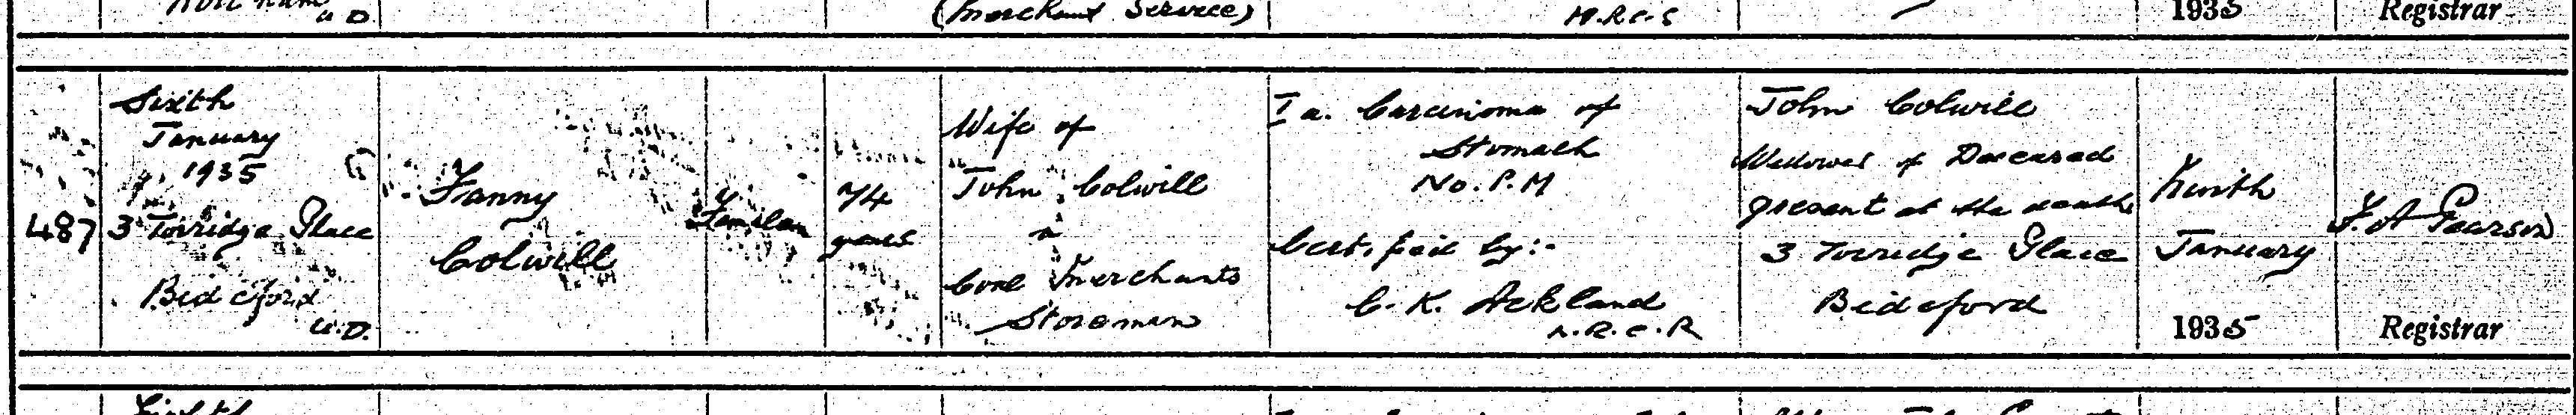 U.D.
(Merchant Service)
M.R.C.S
1935
Registrar
487
Sixth
January
1935
3 Torridge Place
Bideford
U.D.
Fanny
Colwill
Female
74
years
Wife of
John Colwill
a
Coal Merchants
Storeman
I a. Carcinoma of
Stomach
No. P. M
Certified by:-
C. K. Ackland
L.R.C.P
John Colwill
Widower of Deceased
present at the death
3 Torridge Place
Bideford
Ninth
January
1935
F. A Pearson
Registrar